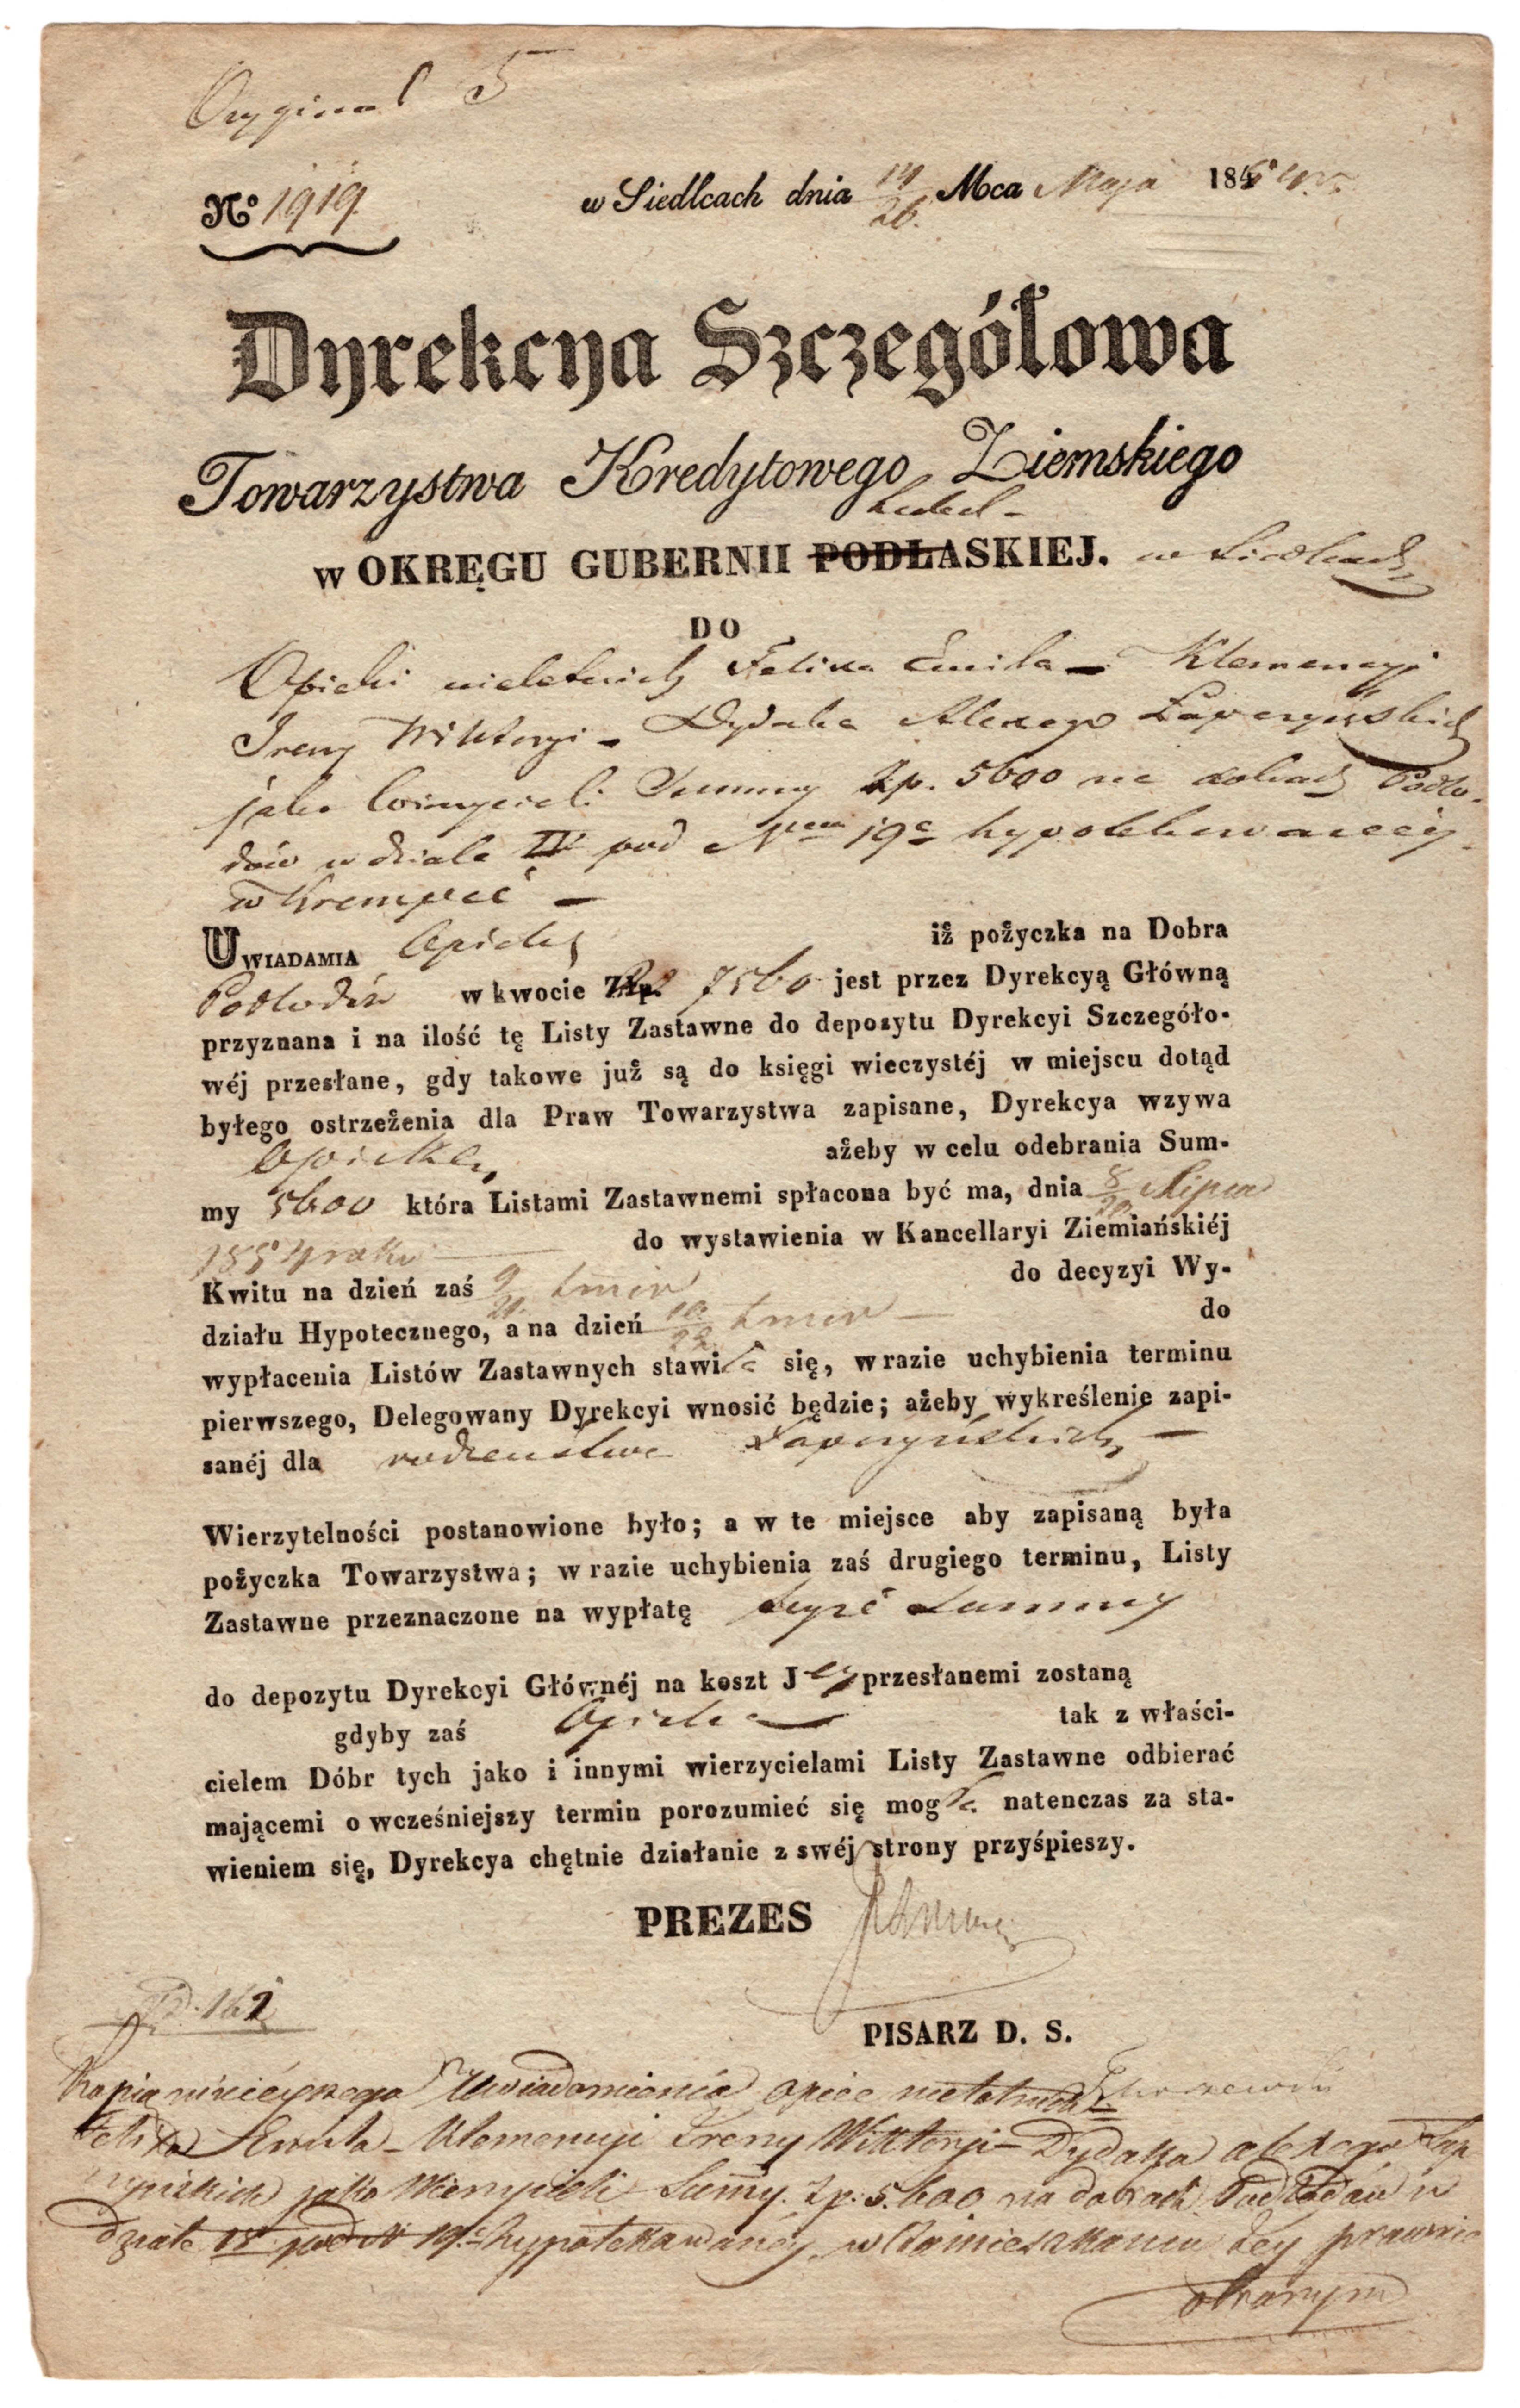 Oryginał 5
No 1919.
w Siedlcach dnia 14/26. Mca Maja 1854 r.
Dyrekcya Szczegółowa
Towarzystwa Kredytowego Ziemskiego
Lubel-
w OKRĘGU GUBERNII PODŁASKIEJ. w Siedlcach
DO
Opieki nieletnich Felixa Emila – Klemencyi
Ireny Wiktoryi – Dydaka Alexego Łapczyńskich
jako Wierzycieli Summy Zp. 5600 na dobrach Podło-
dów w dziale IV pod Nrem 19c hypothekowanéj
w Krempcé –
UWIADAMIA Opiekę iż pożyczka na Dobra
Podłodów w kwocie Złp. 7560 jest przez Dyrekcyą Główną
przyznana i na ilość tę Listy Zastawne do depozytu Dyrekcyi Szczegóło-
wéj przesłane, gdy takowe już są do księgi wieczystéj w miejscu dotąd
byłego ostrzeżenia dla Praw Towarzystwa zapisane, Dyrekcya wzywa
Opiekę, ażeby w celu odebrania Sum-
my 5600 która Listami Zastawnemi spłacona być ma, dnia 8/20 Lipca
1854 roku do wystawienia w Kancellaryi Ziemiańskiéj
Kwitu na dzień zaś 9/21 t m i r do decyzyi Wy-
działu Hypotecznego, a na dzień 10/22 t m i r – do
wypłacenia Listów Zastawnych stawiła się, w razie uchybienia terminu
pierwszego, Delegowany Dyrekcyi wnosić będzie; ażeby wykreślenie zapi-
sanéj dla rodzeństwa Łapczyńskich –
Wierzytelności postanowione było; a w te miejsce aby zapisaną była
pożyczka Towarzystwa; w razie uchybienia zaś drugiego terminu, Listy
Zastawne przeznaczone na wypłatę teyże Summy
do depozytu Dyrekcyi Głównéj na koszt Jey przesłanemi zostaną
gdyby zaś Opieka tak z właści-
cielem Dóbr tych jako i innymi wierzycielami Listy Zastawne odbierać
mającemi o wcześniejszy termin porozumieć się mogła natenczas za sta-
wieniem się, Dyrekcya chętnie działanie z swéj strony przyśpieszy.
PREZES
D. 161
PISARZ D. S.
Kopią niniéyszego Uwiadomienia opiece nieletnich
Felixa Emila – Klemencyi Ireny Wiktoryi – Dydaka alexego Łap
czyńskich jako Wierzycieli Sumy. Zp: 5.600 na dobrach Podłodów w
dziale IV pod N 19.c hypotekowanéj, w Zamieszkaniu Jey prawnie
obranym